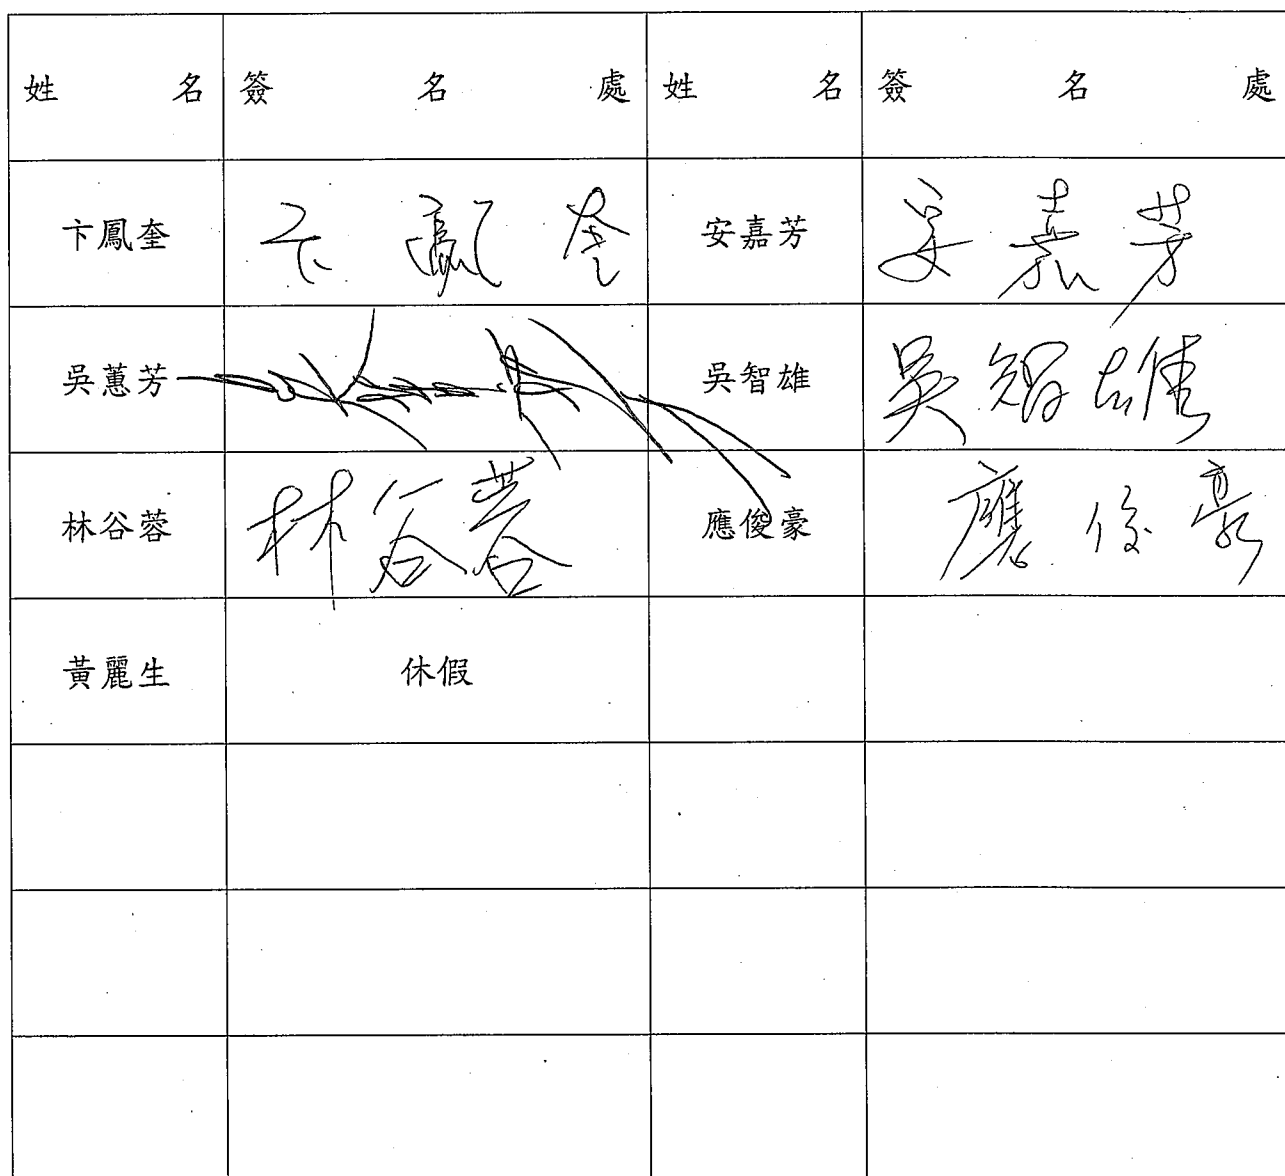 姓 名 簽 名 處 姓 名 簽 名 處
卞鳳奎 卞鳳奎 安嘉芳 安嘉芳
吳蕙芳 吳智雄 吳智雄
林谷蓉 林谷蓉 應俊豪 應俊豪
黃麗生 休假